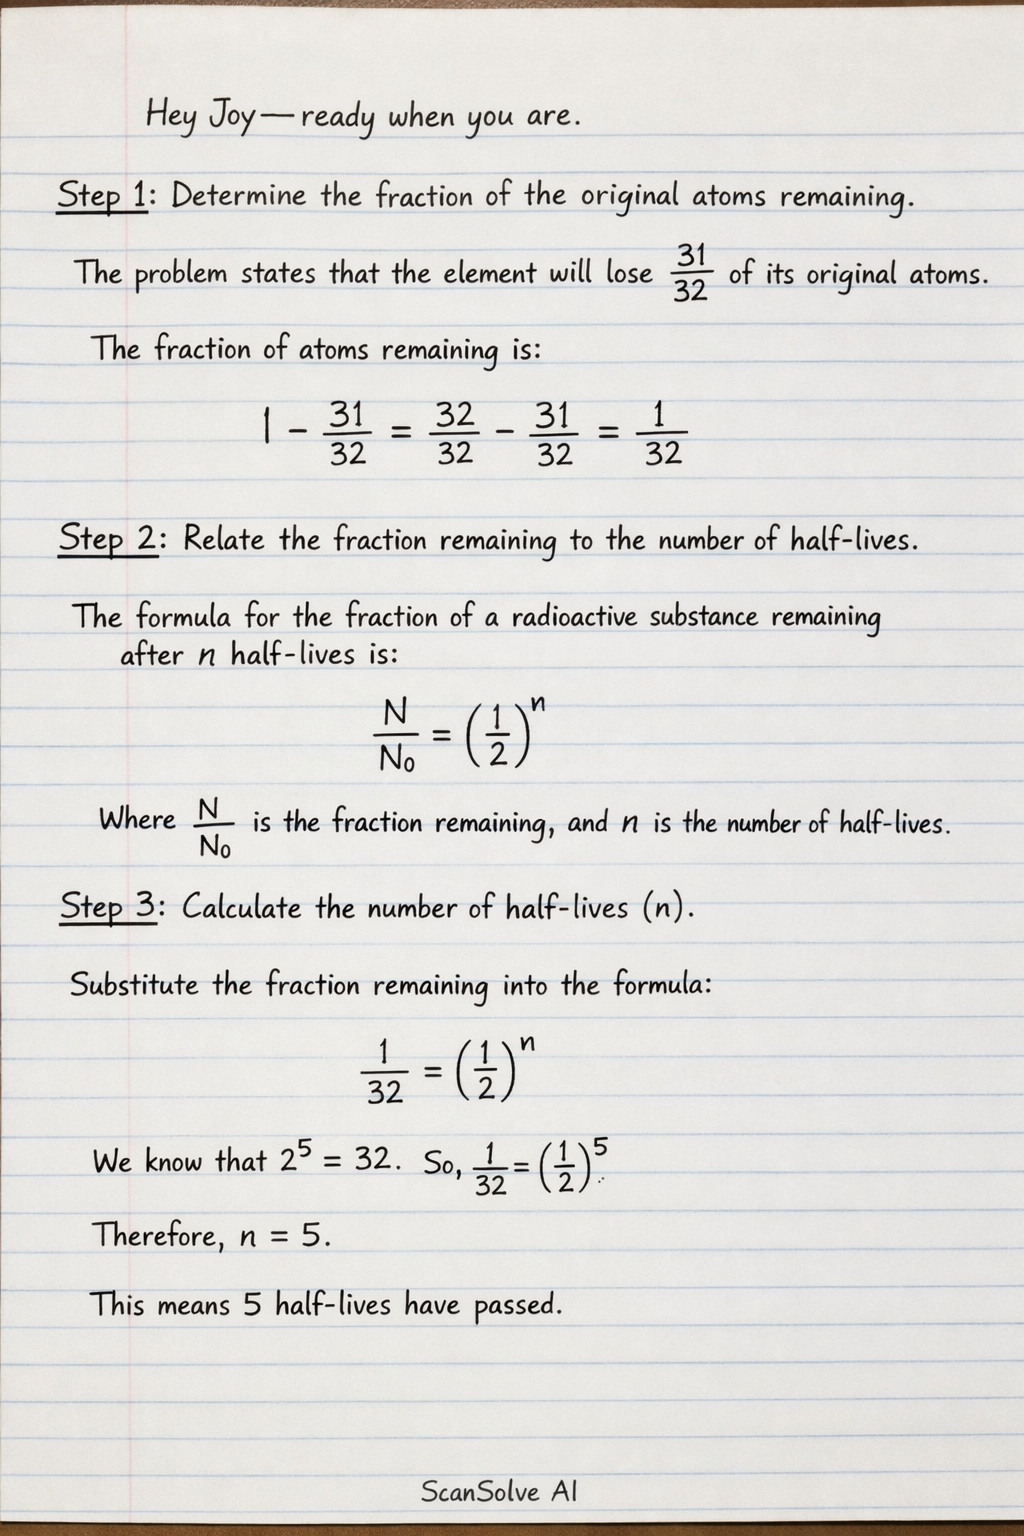 Hey Joy — ready when you are.
Step 1: Determine the fraction of the original atoms remaining.
The problem states that the element will lose 31/32 of its original atoms.
The fraction of atoms remaining is:
1 - 31/32 = 32/32 - 31/32 = 1/32
Step 2: Relate the fraction remaining to the number of half-lives.
The formula for the fraction of a radioactive substance remaining
after n half-lives is:
N/N₀ = (1/2)ⁿ
Where N/N₀ is the fraction remaining, and n is the number of half-lives.
Step 3: Calculate the number of half-lives (n).
Substitute the fraction remaining into the formula:
1/32 = (1/2)ⁿ
We know that 2⁵ = 32. So, 1/32 = (1/2)⁵.
Therefore, n = 5.
This means 5 half-lives have passed.
ScanSolve AI